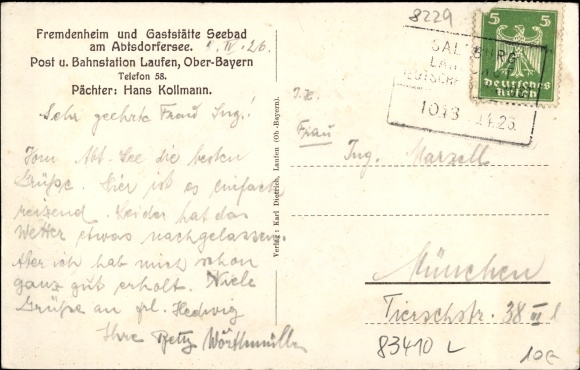 Fremdenheim und Gaststätte Seebad
am Abtsdorfersee.
Post u. Bahnstation Laufen, Ober-Bayern
Telefon 58.
Pächter: Hans Kollmann.
IV. 26.
Sehr geehrte Frau Ing.!
Vom Abt-See die besten
Grüße. Hier ist es einfach
reizend. Leider hat das
Wetter etwas nachgelassen.
Aber ich hab mich schon
ganz gut erholt. Viele
Grüße an frl. Hedwig
Ihre Betty
Verlag: Karl Dietrich, Laufen (Ob.-Bayern).
8229
5 5
Deutsches
Reich
SALZBURG
Frau
Ing. Marzell
München
Tierschstr. 38 III l
83410 L
10€